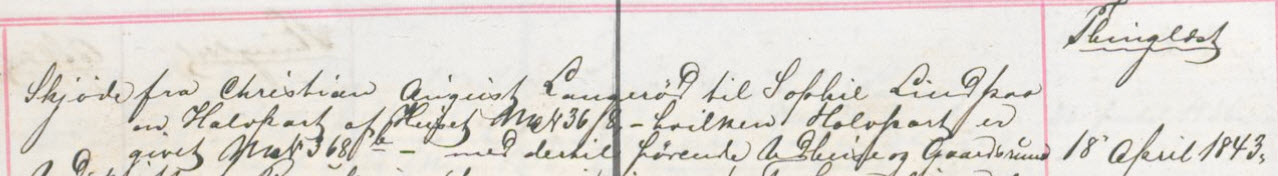 Thinglæst
Skjöde fra Christian August Langerød til Sophie Lind paa
en Halvpart af Huset Mat 368, – hvilken Halvpart er
givet Mat 368 b – med dertil hørende Udhuse og Gaardsrum 18 April 1843.